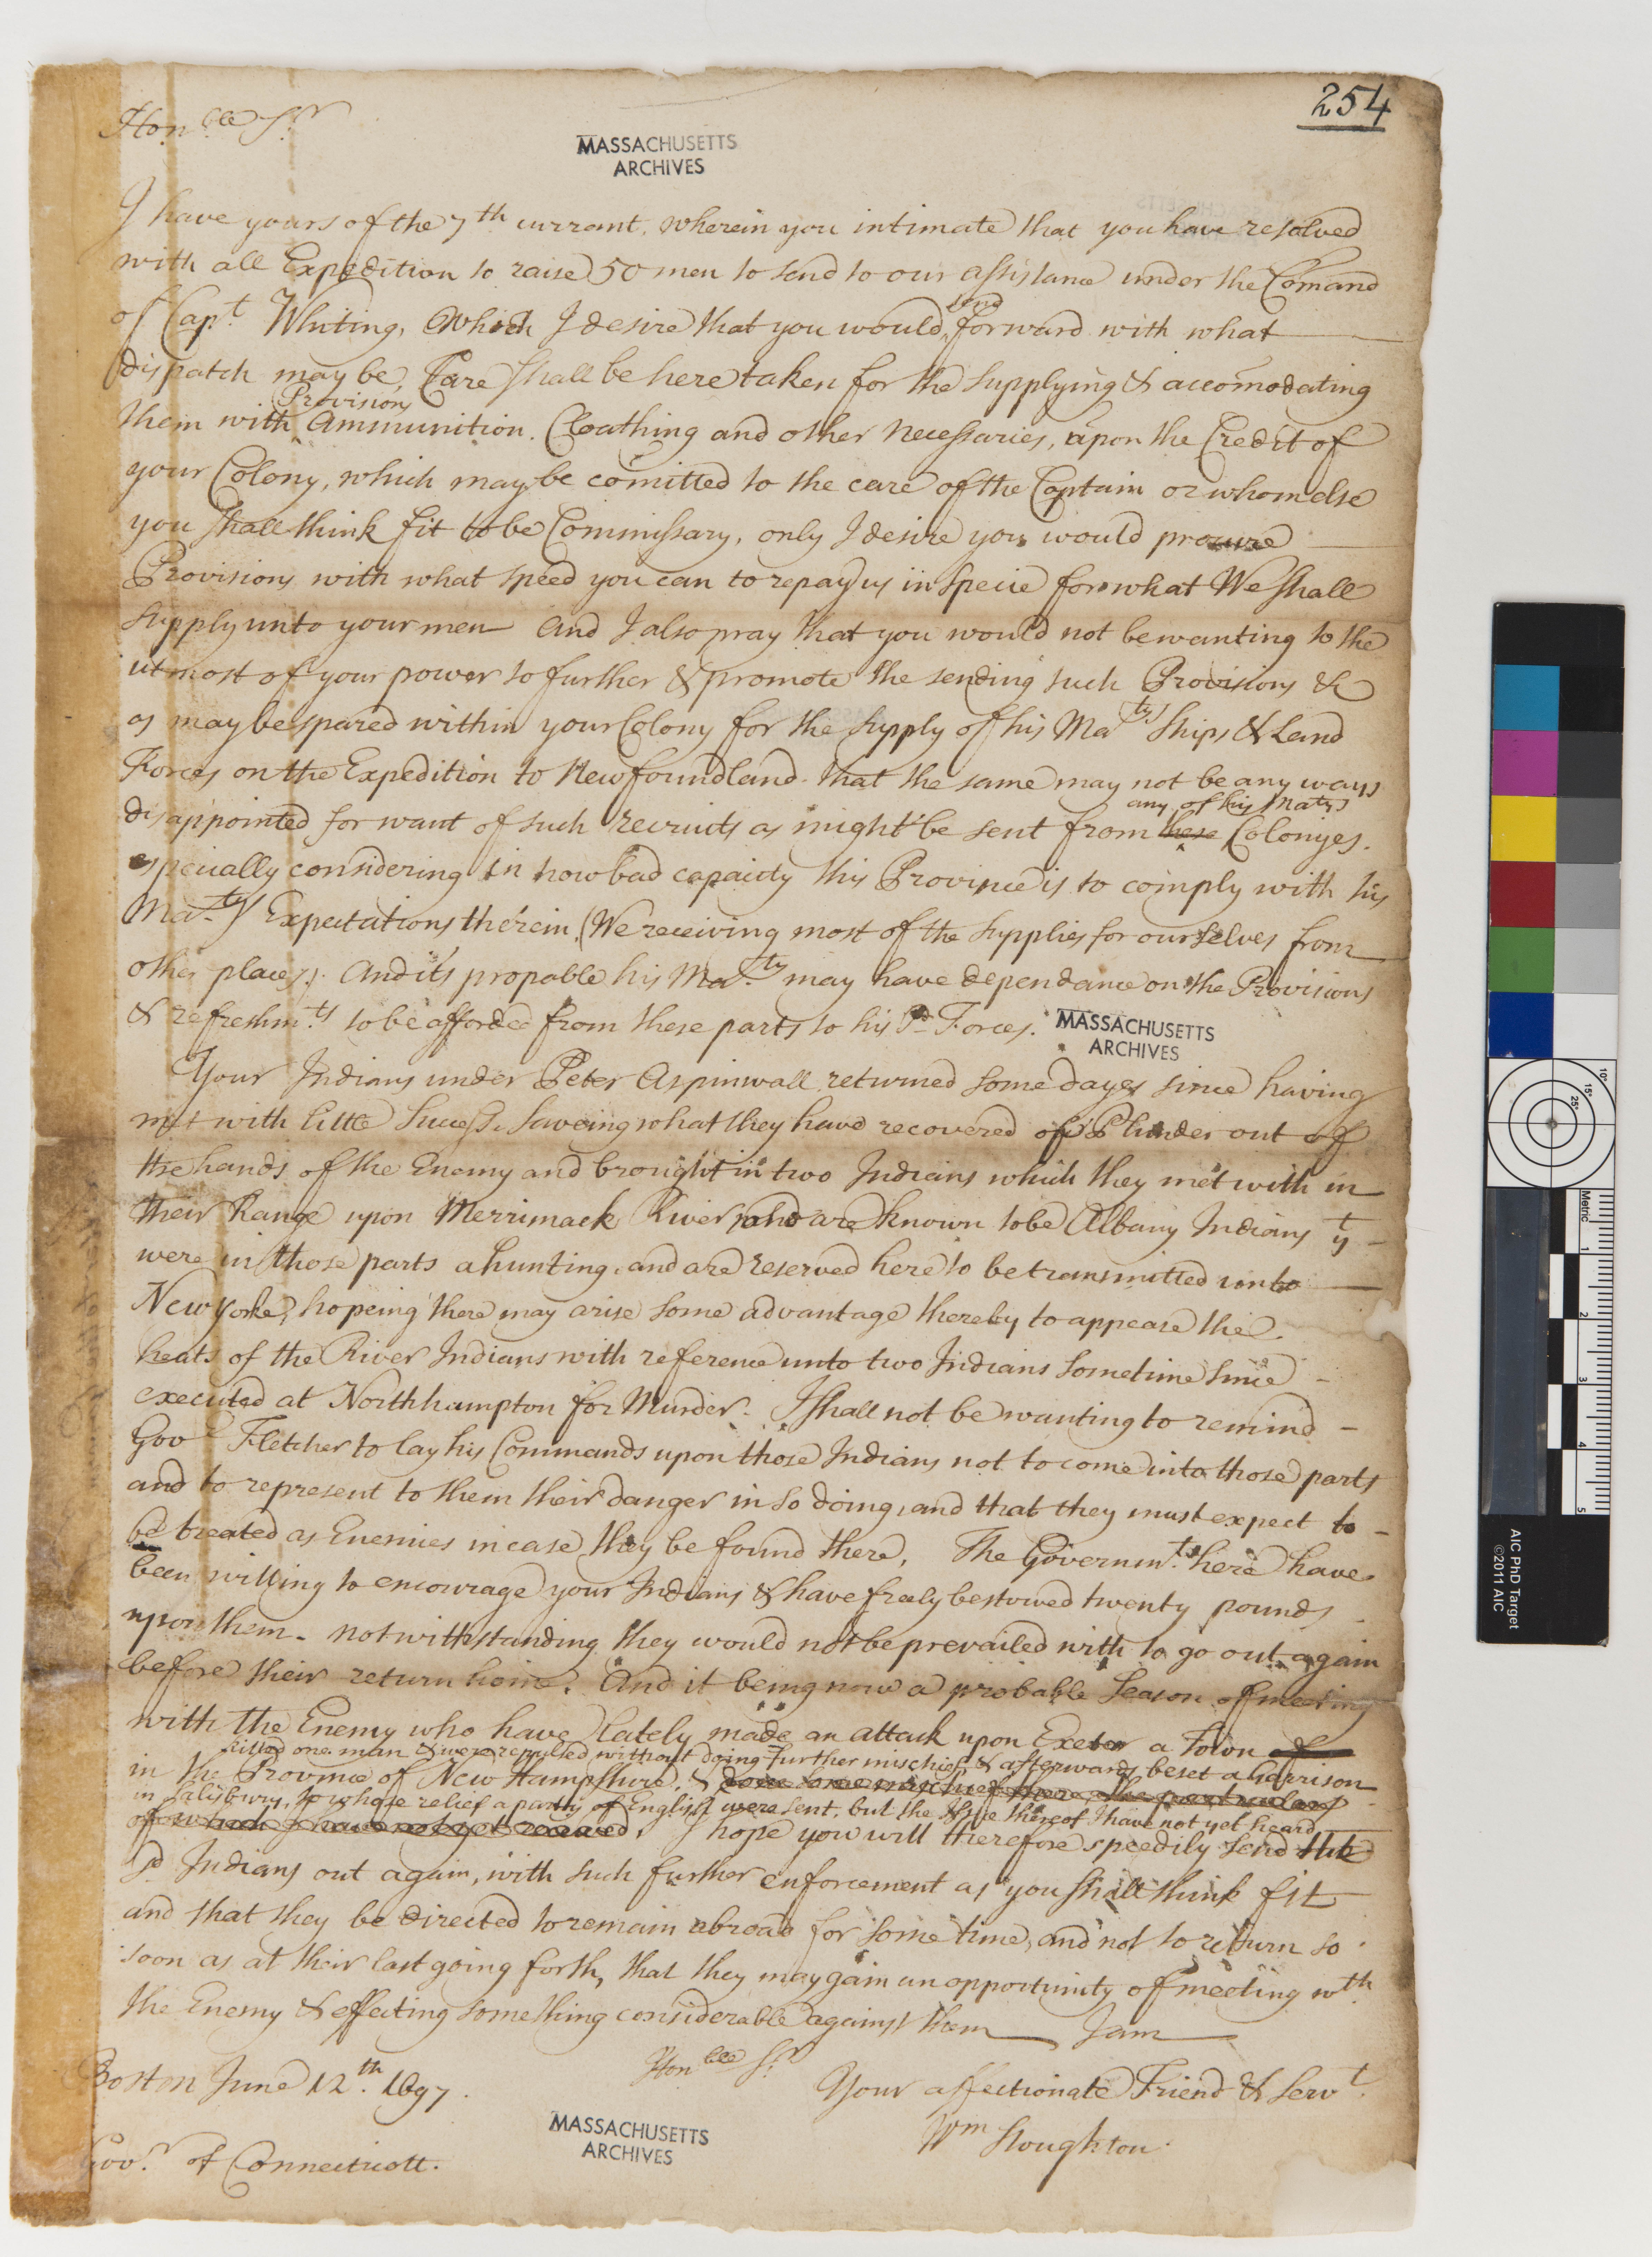 254
Hon.ble S.r
MASSACHUSETTS
ARCHIVES
I have yours of the 7th currant, wherein you intimate that you have resolved
with all Expedition to raise 50 men to send to our assistance under the Comand
of Cap.t Whiting, Which I desire that you would send forward with what
dispatch may be, Care shall be here taken for the supplying & accomodating
them with Provisions Ammunition. Cloathing and other Necessaries, upon the Credit of
your Colony, which may be comitted to the care of the Captain or whom else
you shall think fit to be Commissary, only I desire you would procure
Provisions with what speed you can to repay us in specie for what We shall
supply unto your men And I also pray that you would not be wanting to the
utmost of your power to further & promote the sending such Provisions &c
as may be spared within your Colony for the supply of his Ma.tys Ships & Land
Forces on the Expedition to Newfoundland. that the same may not be any ways
disappointed for want of such recruits as might be sent from these any of his Matys Colonyes.
especially considering in how bad capacity this Province is to comply with his
Ma.tys Expectations therein, (We receiving most of the supplies for ourselves from
other places). And its propable his Ma.ty may have dependance on the Provisions
& refreshm.ts to be afforded from these parts to his s.d Forces.
MASSACHUSETTS
ARCHIVES
Your Indians under Peter Aspinwall returned some dayes since having
met with little Success, Saveing what they have recovered of Plunder out of
the hands of the Enemy and brought in two Indians which they met with in
their Range upon Merrimack River who are known to be Albany Indians yt
were in those parts a hunting, and are reserved here to be transmitted unto
New Yorke, hopeing there may arise some advantage thereby to appease the
heats of the River Indians with reference unto two Indians sometime since
executed at Northhampton for Murder. I shall not be wanting to remind
Gov.r Fletcher to lay his Commands upon those Indians not to come into those parts
and to represent to them their danger in so doing, and that they must expect to
be treated as Enemies in case they be found there, The Governm.t here have
been willing to encourage your Indians & have freely bestowed twenty pounds
upon them. notwithstanding they would not be prevailed with to go out again
beffore their return home. And it being now a probable Season of meeting
with the Enemy who have lately made an attack upon Exeter a Town of
killed one man & were repulsed without doing further mischief, & afterwards beset a Garrison
in the Province of New Hampshire, & done some mischief there, the particulars
in Salisbury, to whose relief a party of English were sent, but the Issue thereof I have not yet heard
of which I have not yet received. I hope you will therefore speedily send the
s.d Indians out again, with such further enforcement as you shall think fit
and that they be directed to remain abroad for some time, and not to return so
soon as at their last going forth, that they may gain an opportunity of meeting wth
the Enemy & effecting something considerable against them I am
Hon.ble S.r
Boston June 12.th 1697.
Your affectionate Friend & Serv.t
Wm Stoughton.
MASSACHUSETTS
ARCHIVES
Gov.r of Connecticott.
10°
15°
25°
Metric
1
2
3
4
5
AIC PhD Target
©2011 AIC